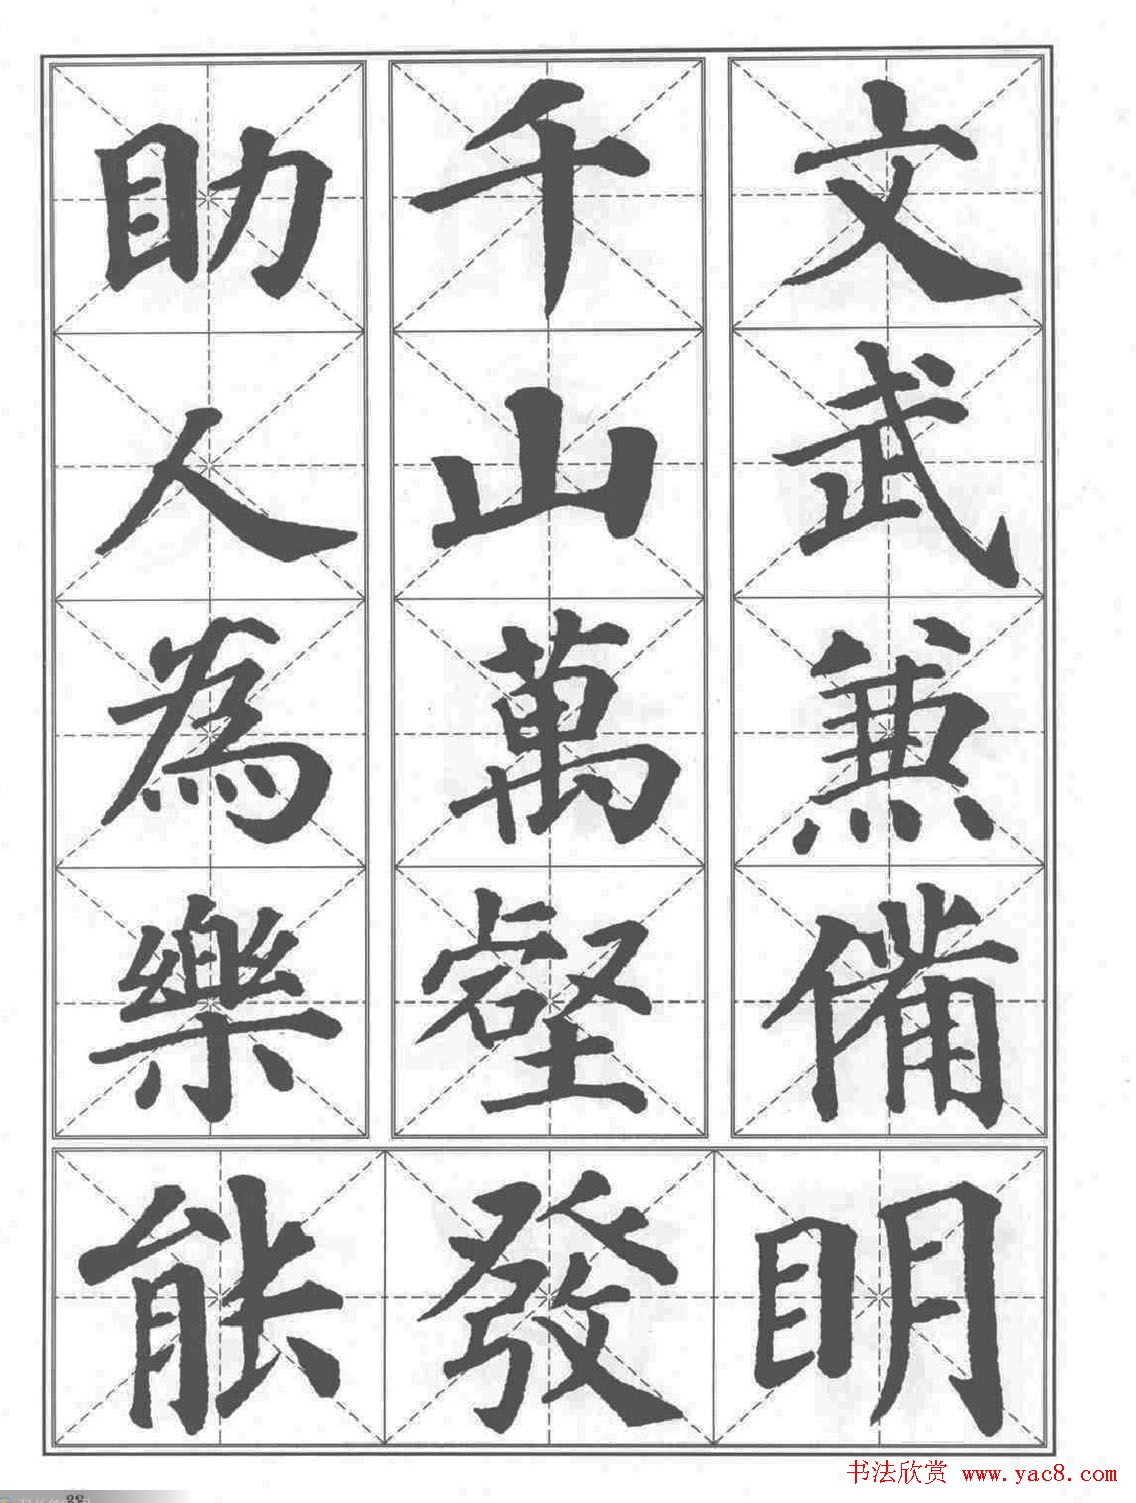 文武兼備
千山萬壑
助人為樂
明發能
书法欣赏 www.yac8.com